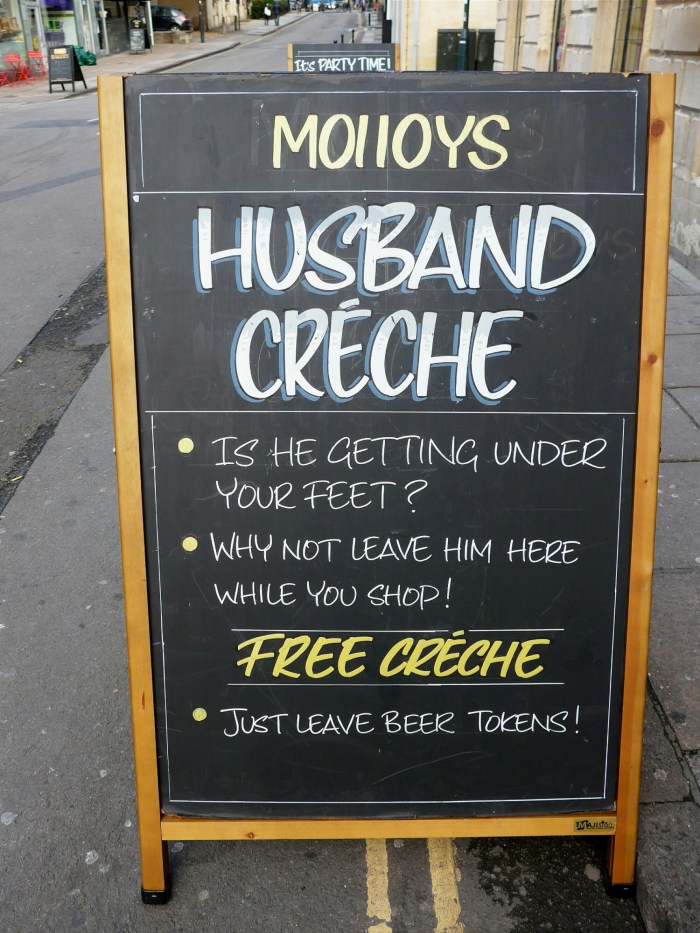 It's PARTY TIME!
MOllOYS
HUSBAND
CRÉCHE
• IS HE GETTING UNDER
YOUR FEET?
• WHY NOT LEAVE HIM HERE
WHILE YOU SHOP!
FREE CRÉCHE
• JUST LEAVE BEER TOKENS!